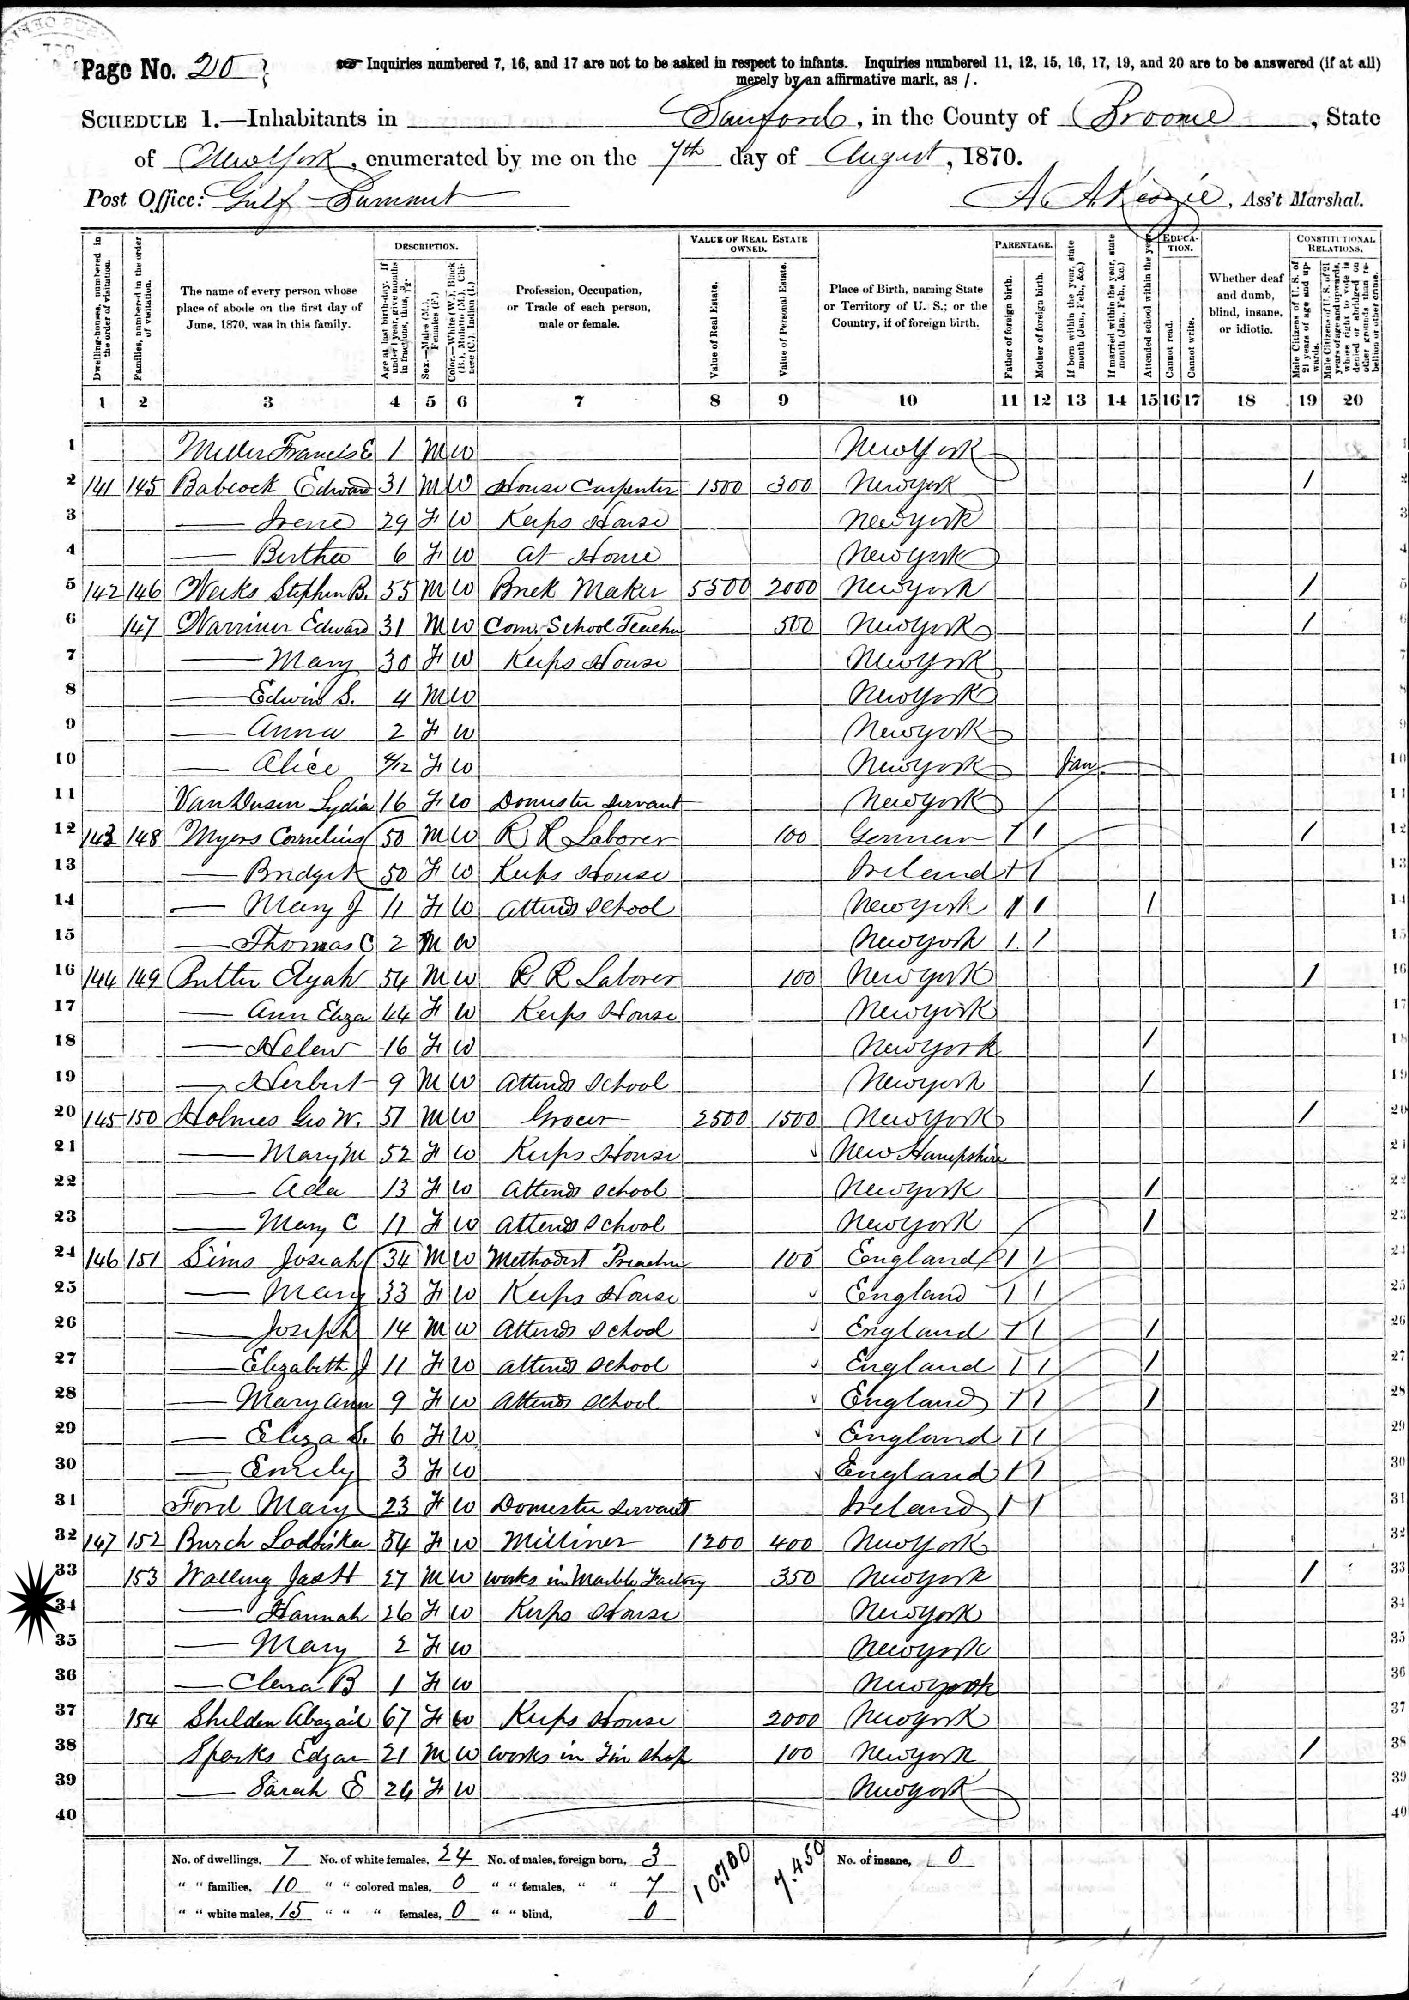 Page No. 20
Inquiries numbered 7, 16, and 17 are not to be asked in respect to infants. Inquiries numbered 11, 12, 15, 16, 17, 19, and 20 are to be answered (if at all)
merely by an affirmative mark, as /.
SCHEDULE 1.—Inhabitants in Sanford, in the County of Broome, State
of New York, enumerated by me on the 7th day of August, 1870.
Post Office: Gulf Summit
A. A. , Ass't Marshal.
Dwelling-houses, numbered in the order of visitation.
Families, numbered in the order of visitation.
The name of every person whose place of abode on the first day of June, 1870, was in this family.
DESCRIPTION.
Age at last birth-day. If under 1 year, give months in fractions, thus, 3/12.
Sex.—Males (M.), Females (F.)
Color.—White (W.), Black (B.), Mulatto (M.), Chinese (C.), Indian (I.)
Profession, Occupation, or Trade of each person, male or female.
VALUE OF REAL ESTATE OWNED.
Value of Real Estate.
Value of Personal Estate.
Place of Birth, naming State or Territory of U. S.; or the Country, if of foreign birth.
PARENTAGE.
Father of foreign birth.
Mother of foreign birth.
If born within the year, state month (Jan., Feb., &c.)
If married within the year, state month (Jan., Feb., &c.)
Attended school within the year.
EDUCATION.
Cannot read.
Cannot write.
Whether deaf and dumb, blind, insane, or idiotic.
CONSTITUTIONAL RELATIONS.
Male Citizens of U. S. of 21 years of age and upwards.
Male Citizens of U. S. of 21 years of age and upwards, whose right to vote is denied or abridged on other grounds than rebellion or other crime.
1 2 3 4 5 6 7 8 9 10 11 12 13 14 15 16 17 18 19 20
1 Miller Francis E 1 M W New York 1
2 141 145 Babcock Edward 31 M W House Carpenter 1500 300 New York / 2
3 — Irene 29 F W Keeps House New York 3
4 — Bertha 6 F W At Home New York 4
5 142 146 Weeks Stephen B. 55 M W Brick Maker 5500 2000 New York / 5
6 147 Warriner Edward 31 M W Com. School Teacher 500 New York / 6
7 — Mary 30 F W Keeps House New York 7
8 — Edwin S. 4 M W New York 8
9 — Anna 2 F W New York 9
10 — Alice /12 F W New York Jan 10
11 Van Dusen Lydia 16 F W Domestic Servant New York 11
12 143 148 Myers Cornelius 50 M W R R Laborer 100 German / / / 12
13 — Bridget 50 F W Keeps House Ireland / / 13
14 — Mary J 11 F W Attends School New York / / / 14
15 — Thomas C 2 M W New York / / 15
16 144 149 Butler Elijah 54 M W R R Laborer 100 New York / 16
17 — Ann Eliza 44 F W Keeps House New York 17
18 — Helen 16 F W New York / 18
19 — Herbert 9 M W Attends School New York / 19
20 145 150 Holmes Geo W. 51 M W Grocer 2500 1500 New York / 20
21 — Mary M 52 F W Keeps House New Hampshire 21
22 — Ada 13 F W Attends School New York / 22
23 — Mary C 11 F W Attends School New York / 23
24 146 151 Sims Josiah 34 M W Methodist Preacher 100 England / / 24
25 — Mary 33 F W Keeps House England / / 25
26 — Joseph 14 M W Attends School England / / / 26
27 — Elizabeth J 11 F W Attends School England / / / 27
28 — Mary Ann 9 F W Attends School England / / / 28
29 — Eliza S. 6 F W England / / 29
30 — Emily 3 F W England / / 30
31 Ford Mary 23 F W Domestic Servant Ireland / / 31
32 147 152 Burch Lodiska 54 F W Milliner 1200 400 New York 32
33 153 Walling Jas H 27 M W Works in Marble Factory 350 New York / 33
34 — Hannah 26 F W Keeps House New York 34
35 — Mary 2 F W New York 35
36 — Clara B 1 F W New York 36
37 154 Shelden Abagail 67 F W Keeps House 2000 New York 37
38 Sparks Edgar 21 M W Works in Tin Shop 100 New York / 38
39 — Sarah E 26 F W New York 39
40 40
No. of dwellings, 7 No. of white females, 24 No. of males, foreign born, 3 10.700 7.450 No. of insane, 0
" " families, 10 " " colored males, 0 " " females, " " 7
" " white males, 15 " " " females, 0 " " blind, 0